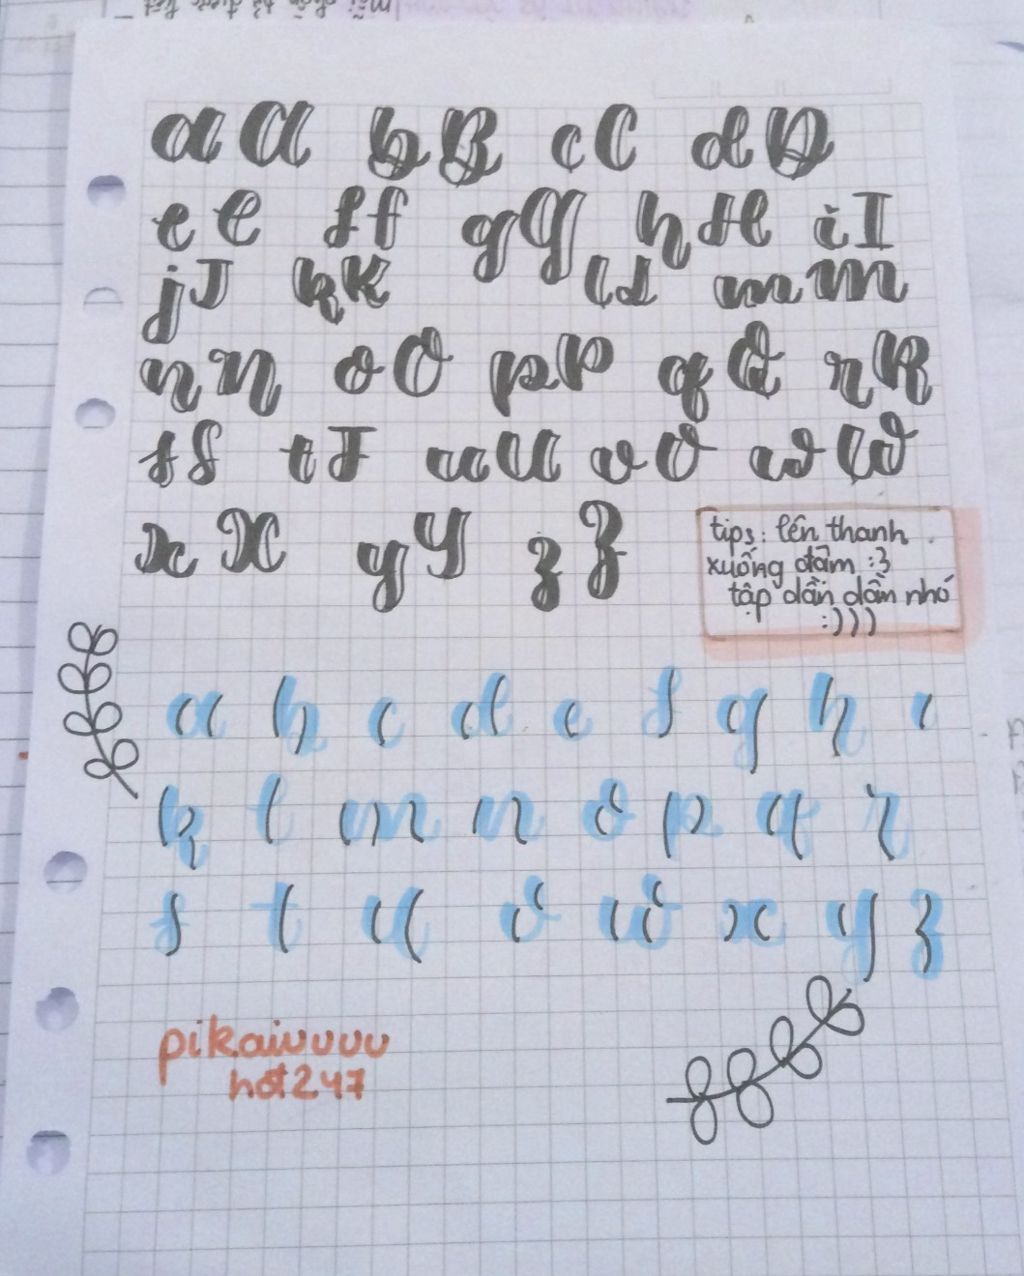 a A b B c C d D
e E f f g G h H i I
j J k K l L m M
n N o O p P q Q r R
s S t T u U v V w W
x X y Y z Z
tips: lên thanh
xuống đậm :3
tập dần dần nhó
:)))
a b c d e f g h i
k l m n o p q r
s t u v w x y z
pikaiuuuu
hot247